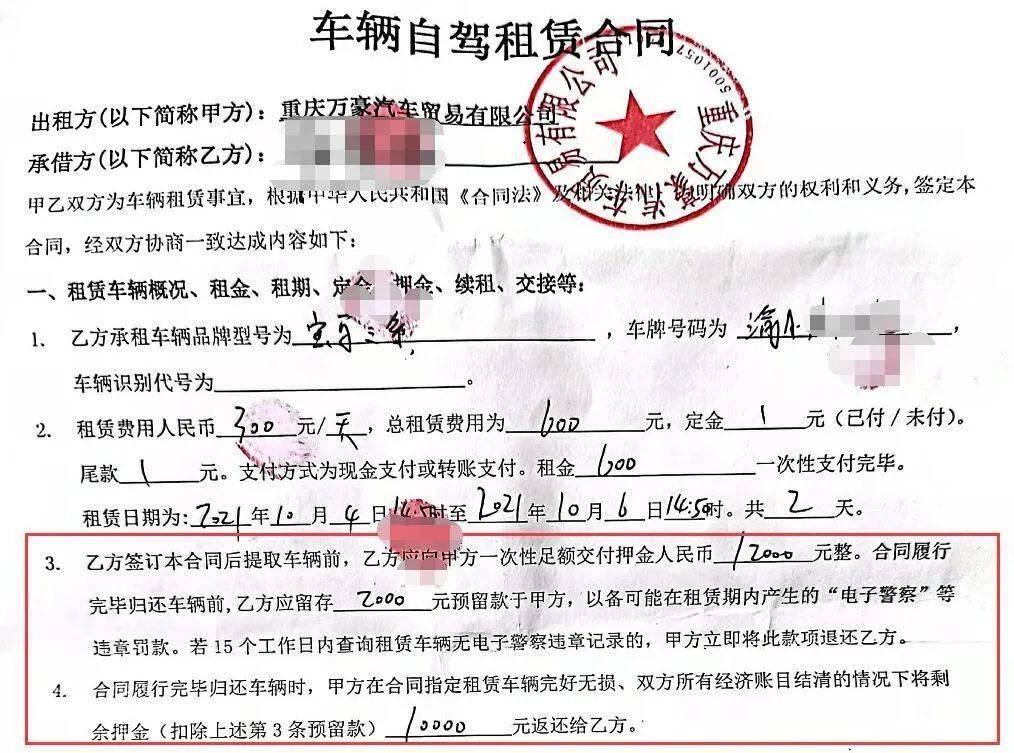 车辆自驾租赁合同
重庆万豪汽车贸易有限公司
5001057
出租方(以下简称甲方)：重庆万豪汽车贸易有限公司
承借方(以下简称乙方)：
甲乙双方为车辆租赁事宜，根据中华人民共和国《合同法》及相关法律，明确双方的权利和义务,签定本
合同，经双方协商一致达成内容如下：
一、租赁车辆概况、租金、租期、定金、押金、续租、交接等：
1. 乙方承租车辆品牌型号为 宝马三系 ，车牌号码为 渝A ，
车辆识别代号为 。
2. 租赁费用人民币 300 元/天，总租赁费用为 600 元，定金 1 元（已付/未付）。
尾款 1 元。支付方式为现金支付或转账支付。租金 600 一次性支付完毕。
租赁日期为：2021年10月4日14:50时至2021年10月6日14:50时。共 2 天。
3. 乙方签订本合同后提取车辆前，乙方应向甲方一次性足额交付押金人民币 12000 元整。合同履行
完毕归还车辆前,乙方应留存 2000 元预留款于甲方，以备可能在租赁期内产生的“电子警察”等
违章罚款。若15个工作日内查询租赁车辆无电子警察违章记录的，甲方立即将此款项退还乙方。
4. 合同履行完毕归还车辆时，甲方在合同指定租赁车辆完好无损、双方所有经济账目结清的情况下将剩
余押金（扣除上述第3条预留款） 10000 元返还给乙方。